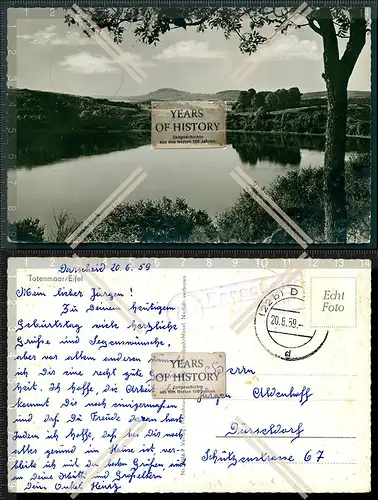 YEARS
of HISTORY
Zeitgeschichte
aus den letzten 100 Jahren
Totenmaar/Eifel
Darscheid 20.6.59
Mein lieber Jürgen!
Zu Deinem heutigen
Geburtstag viele herzliche
Grüße und Segenswünsche,
aber vor allem anderen
ich Dir eine recht gute
heit. Ich hoffe, die Arbei
kommt Dir noch einigermaßen
und daß Du Freude daran hast.
Zudem ich hoffe, daß bei Dir noch
alles gesund im Hause ist, ver-
bleibe ich mit den besten Grüßen auch
an Deine Mutti und Großeltern
Dein Onkel Heinz
(22b)
20.6.59
d
Echt
Foto
YEARS
of HISTORY
Zeitgeschichte
aus den letzten 100 Jahren
Herrn
Jürgen Oldenhoff
Düsseldorf
Schützenstrasse 67